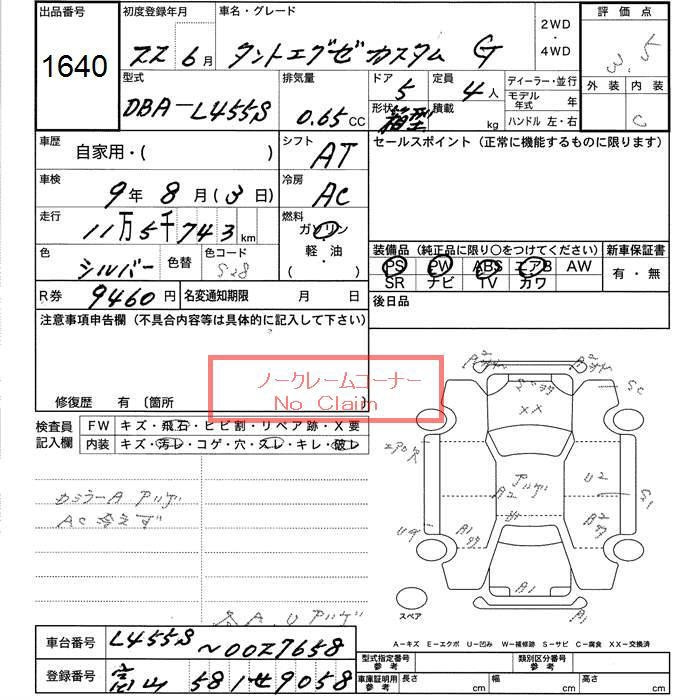 出品番号
1640
初度登録年月
22 6月
車名・グレード
タントエグゼカスタム G
2WD
・
4WD
評価点
3.5
外装 内装
C
型式
DBA-L455S
排気量
0.65 CC
ドア
5
形状
箱型
定員
4人
積載
kg
ディーラー・並行
モデル年式 年
ハンドル 左・右
車歴
自家用・( )
シフト
AT
セールスポイント(正常に機能するものに限ります)
車検
9年 8月(3日)
冷房
AC
走行
11万5千743km
燃料
ガソリン
・
軽・油
( )
色
シルバー
色替
色コード
S28
装備品(純正品に限り○をつけてください)
PS PW ABS エアB AW
SR ナビ TV カワ
新車保証書
有・無
R券 9460円
名変通知期限 月 日
後日品
注意事項申告欄(不具合内容等は具体的に記入して下さい)
ノークレームコーナー
No Claim
修復歴 有 〔箇所 〕
検査員記入欄
FW キズ・飛石・ヒビ割・リペア跡・X要
内装 キズ・汚レ・コゲ・穴・スレ・キレ・破レ
AC冷えず
A.U アリゲ
XX
A2
U2
A2
A1
A1
スペア
A-キズ E-エクボ U-凹み W-補修跡 S-サビ C-腐食 XX-交換済
車台番号 L455S~0027658
登録番号 富山 581せ9058
型式指定番号 参考
類別区分番号 参考
車庫証明用 参考 長さ cm 幅 cm 高さ cm